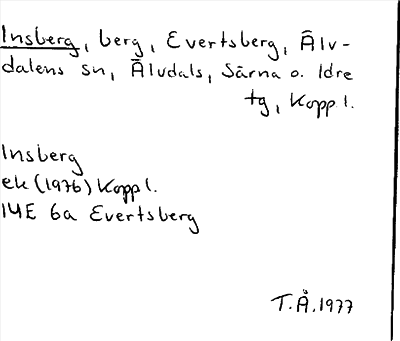 Insberg, berg, Evertsberg, Älv-
dalens sn, Älvdals, Särna o. Idre
tg, Kopp. l.
Insberg
ek (1976) Kopp l.
14E 6a Evertsberg
T.Å. 1977